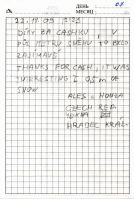 ДЕНЬ 08
МЕСЯЦ
22.11.09 
DÍKY ZA CASHKU, V
PŮL METRU SNĚHU TO BYLO
ZAJÍMAVÉ
THANKS FOR CASH, IT WAS
INTERESTING 0,5m OF
SNOW
ALES + HONZA
CZECH REP.
HRADEC KRÁL.